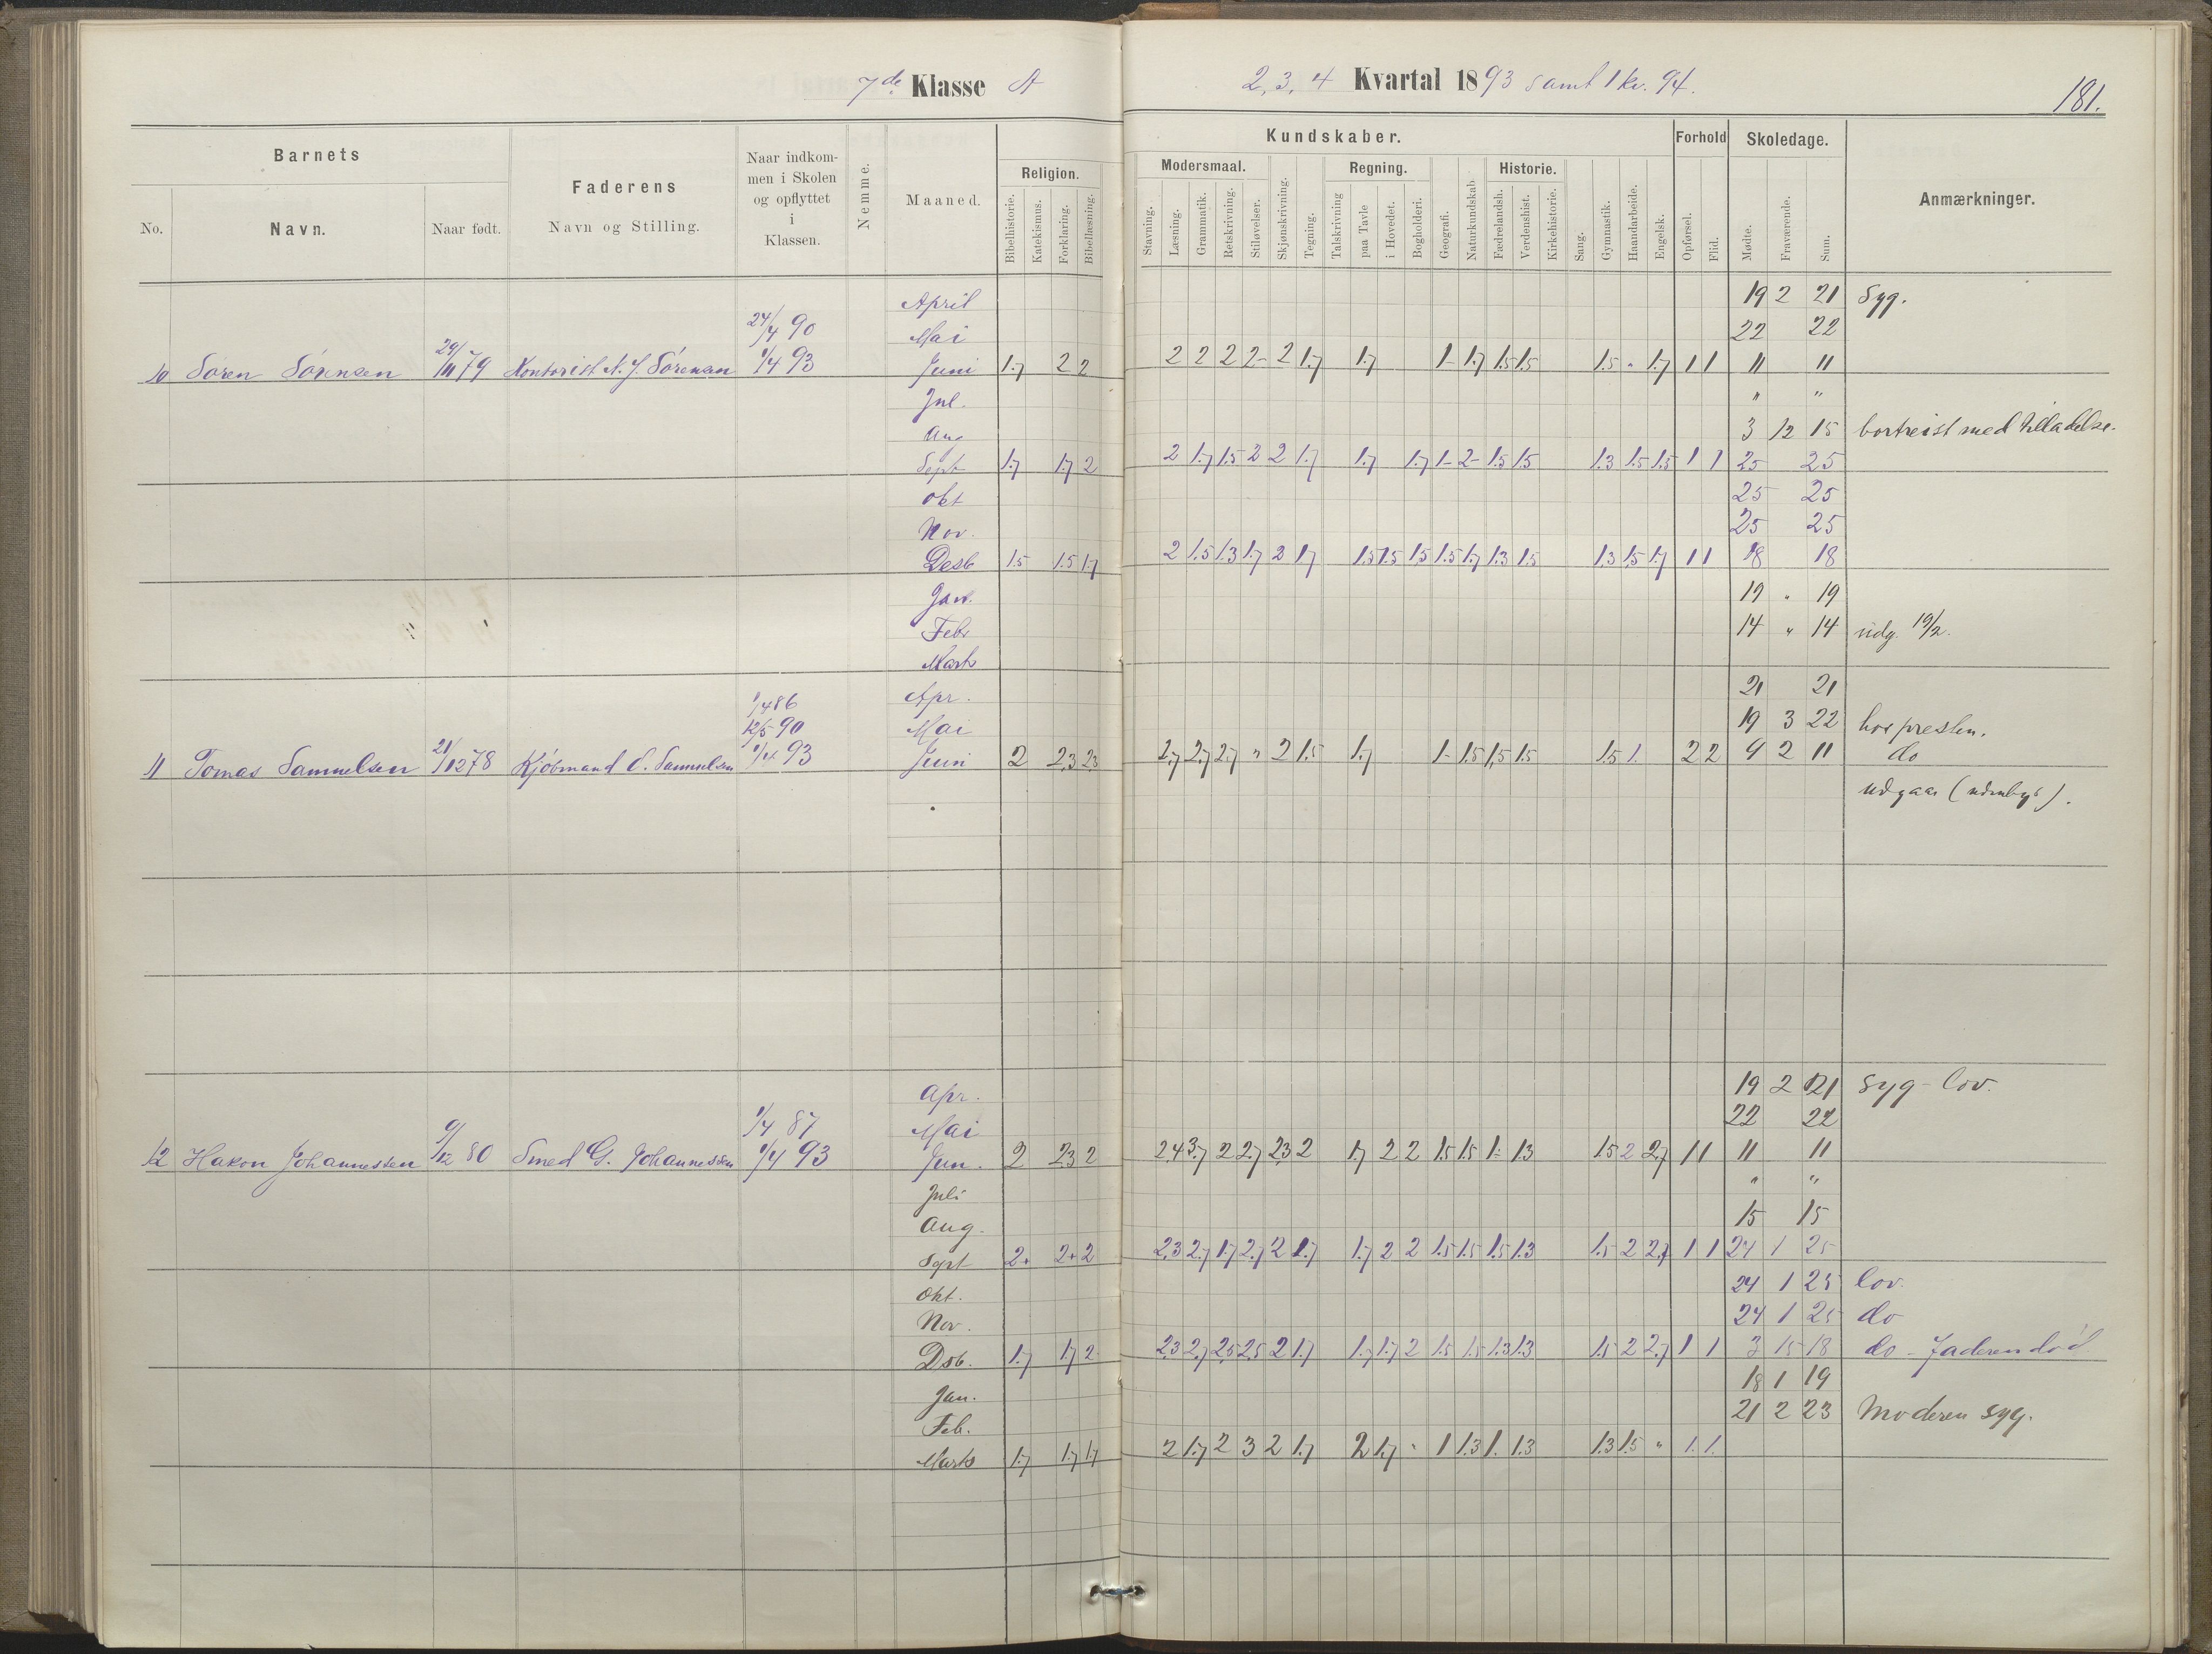 7de Klasse A
2, 3, 4 Kvartal 1893 samt 1 kv. 94.
181.
Barnets
No.
Navn.
Naar født.
Faderens
Navn og Stilling.
Naar indkom-
men i Skolen
og opflyttet
i
Klassen.
Nemme.
Maaned.
Religion.
Bibelhistorie.
Katekismus.
Forklaring.
Bibellæsning.
Kundskaber.
Modersmaal.
Stavning.
Læsning.
Grammatik.
Retskrivning.
Stiløvelser.
Skjønskrivning.
Tegning.
Regning.
Talskrivning
paa Tavle
i Hovedet.
Bogholderi.
Geografi.
Naturkundskab
Historie.
Fædrelandsh.
Verdenshist.
Kirkehistorie.
Sang.
Gymnastik.
Haandarbeide.
Engelsk.
Forhold
Opførsel.
Flid.
Skoledage.
Mødte.
Fraværende.
Sum.
Anmærkninger.
April 19 2 21 Syg.
24/4 90 Mai 22 22
10 Søren Sørensen 29/11 79 Kontorist N. J. Sørensen 1/4 93 Juni 1.7 2 2 2 2 2 2- 2 1.7 1.7 1- 1.7 1.5 1.5 1.5 " 1.7 1 1 11 11
Jul. " "
Aug 3 12 15 bortreist med tilladelse.
Sept 1.7 1.7 2 2 1.7 1.5 2 2 1.7 1.7 1.7 1- 2- 1.5 1.5 1.3 1.5 1.5 1 1 25 25
Okt 25 25
Nov. 25 25
Desb 1.5 1.5 1.7 2 1.5 1.3 1.7 2 1.7 1.5 1.5 1.5 1.5 1.7 1.3 1.5 1.3 1.5 1.7 1 1 18 18
Jan. 19 " 19
Febr 14 " 14 udg. 19/2.
Marts
1/4 86 Apr. 21 21
12/5 90 Mai 19 3 22 hos presten.
11 Tomas Samuelsen 21/12 78 Kjøbmand C. Samuelsen 1/4 93 Juni 2 2,3 2,3 2,7 2,7 2,7 " 2 1.5 1.7 1- 1.5 1.5 1.5 1.5 1. 2 2 9 2 11 do
udgaar (udenbys).
Apr. 19 2 21 syg - lov.
1/4 87 Mai 22 22
12 Hakon Johannessen 9/12 80 Smed G. Johannessen 1/4 93 Jun. 2 2,3 2 2,4 3,7 2 2,7 2,3 2 1.7 2 2 1.5 1.5 1- 1.3 1.5 2 2,7 1 1 11 11
Juli " "
Aug. 15 15
Sept 2+ 2+ 2 2,3 2,7 1.7 2,7 2 1.7 1.7 2 2 1.5 1.5 1.5 1.3 1.5 2 2,7 1 1 24 1 25
Okt. 24 1 25 lov.
Nov. 24 1 25 do
Dsb. 1.7 1.7 2 2,3 2,7 2,5 2,5 2 1.7 1.7 1.7 2 1.5 1.5 1.3 1.3 1.5 2 2,7 1 1 3 15 18 do - faderen død.
Jan. 18 1 19
Feb. 21 2 23 Moderen syg.
Marts 1.7 1.7 1.7 2 1.7 2 3 2 1.7 2 1.7 " 1 1.3 1. 1.3 1.3 1.5 " 1. 1.